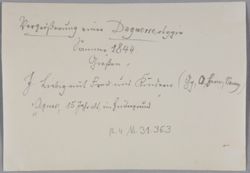 Vergrößerung einer Daguerreotypie
Sommer 1844
Gießen.
J. Liebig mit Frau und Kindern (
Agnes, 15 Jahr alt, im Hintergrund